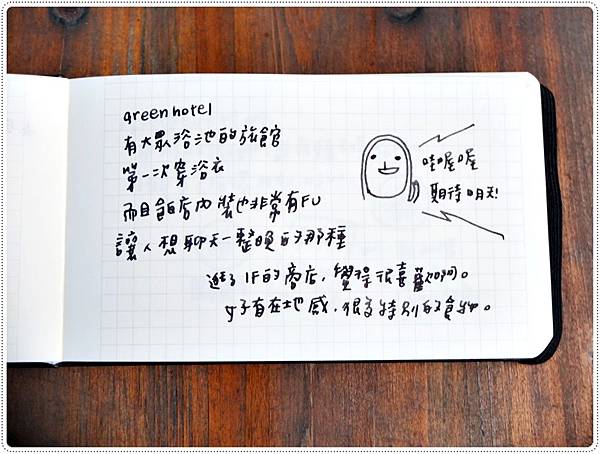 green hotel
有大眾浴池的旅館
第一次穿浴衣
而且飯店內裝也非常有FU
讓人想聊天一整晚的那種
哇喔喔
期待明天!
逛了1F的商店,覺得很喜歡啊。
好有在地感,很多特別的食物。